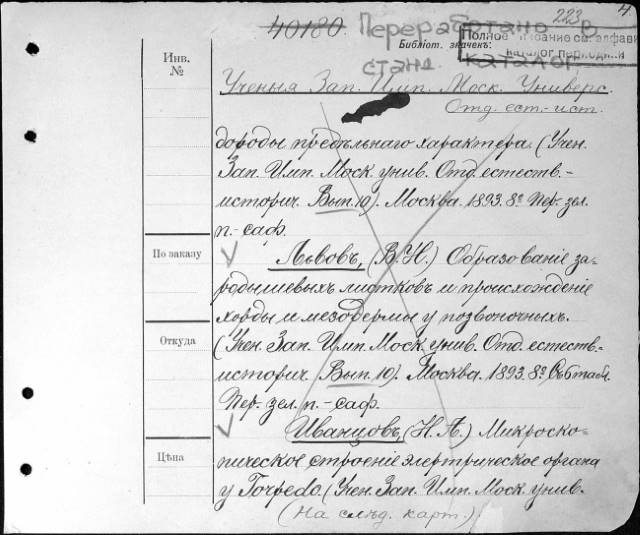 40180. Переработано 223 4.
Библіот. значекъ:
Полное описание см. алфави
каталог периодики
Инв.
№
станд. каталог
Ученыя Зап. Имп. Моск. Универс.
Отд. ест.-ист.
дороды предѣльнаго характера. (Учен.
Зап. Имп. Моск. унив. Отд. естеств.-
историч. Вып. 10). Москва. 1893. 8º. Пер. зел.
п.-саф.
По заказу
Львовъ, (В. Н.) Образованіе за-
родышевыхъ листковъ и происхожденіе
хорды и мезодермы у позвоночныхъ.
Откуда
(Учен. Зап. Имп. Моск. унив. Отд. естеств.-
историч. Вып. 10). Москва. 1893. 8º. Съ 6 табл.
Пер. зел. п.-саф.
Иванцовъ, (Н. А.) Микроско-
Цѣна
пическое строеніе электрическое органа
у Torpedo. (Учен. Зап. Имп. Моск. унив.
(На слѣд. карт.)